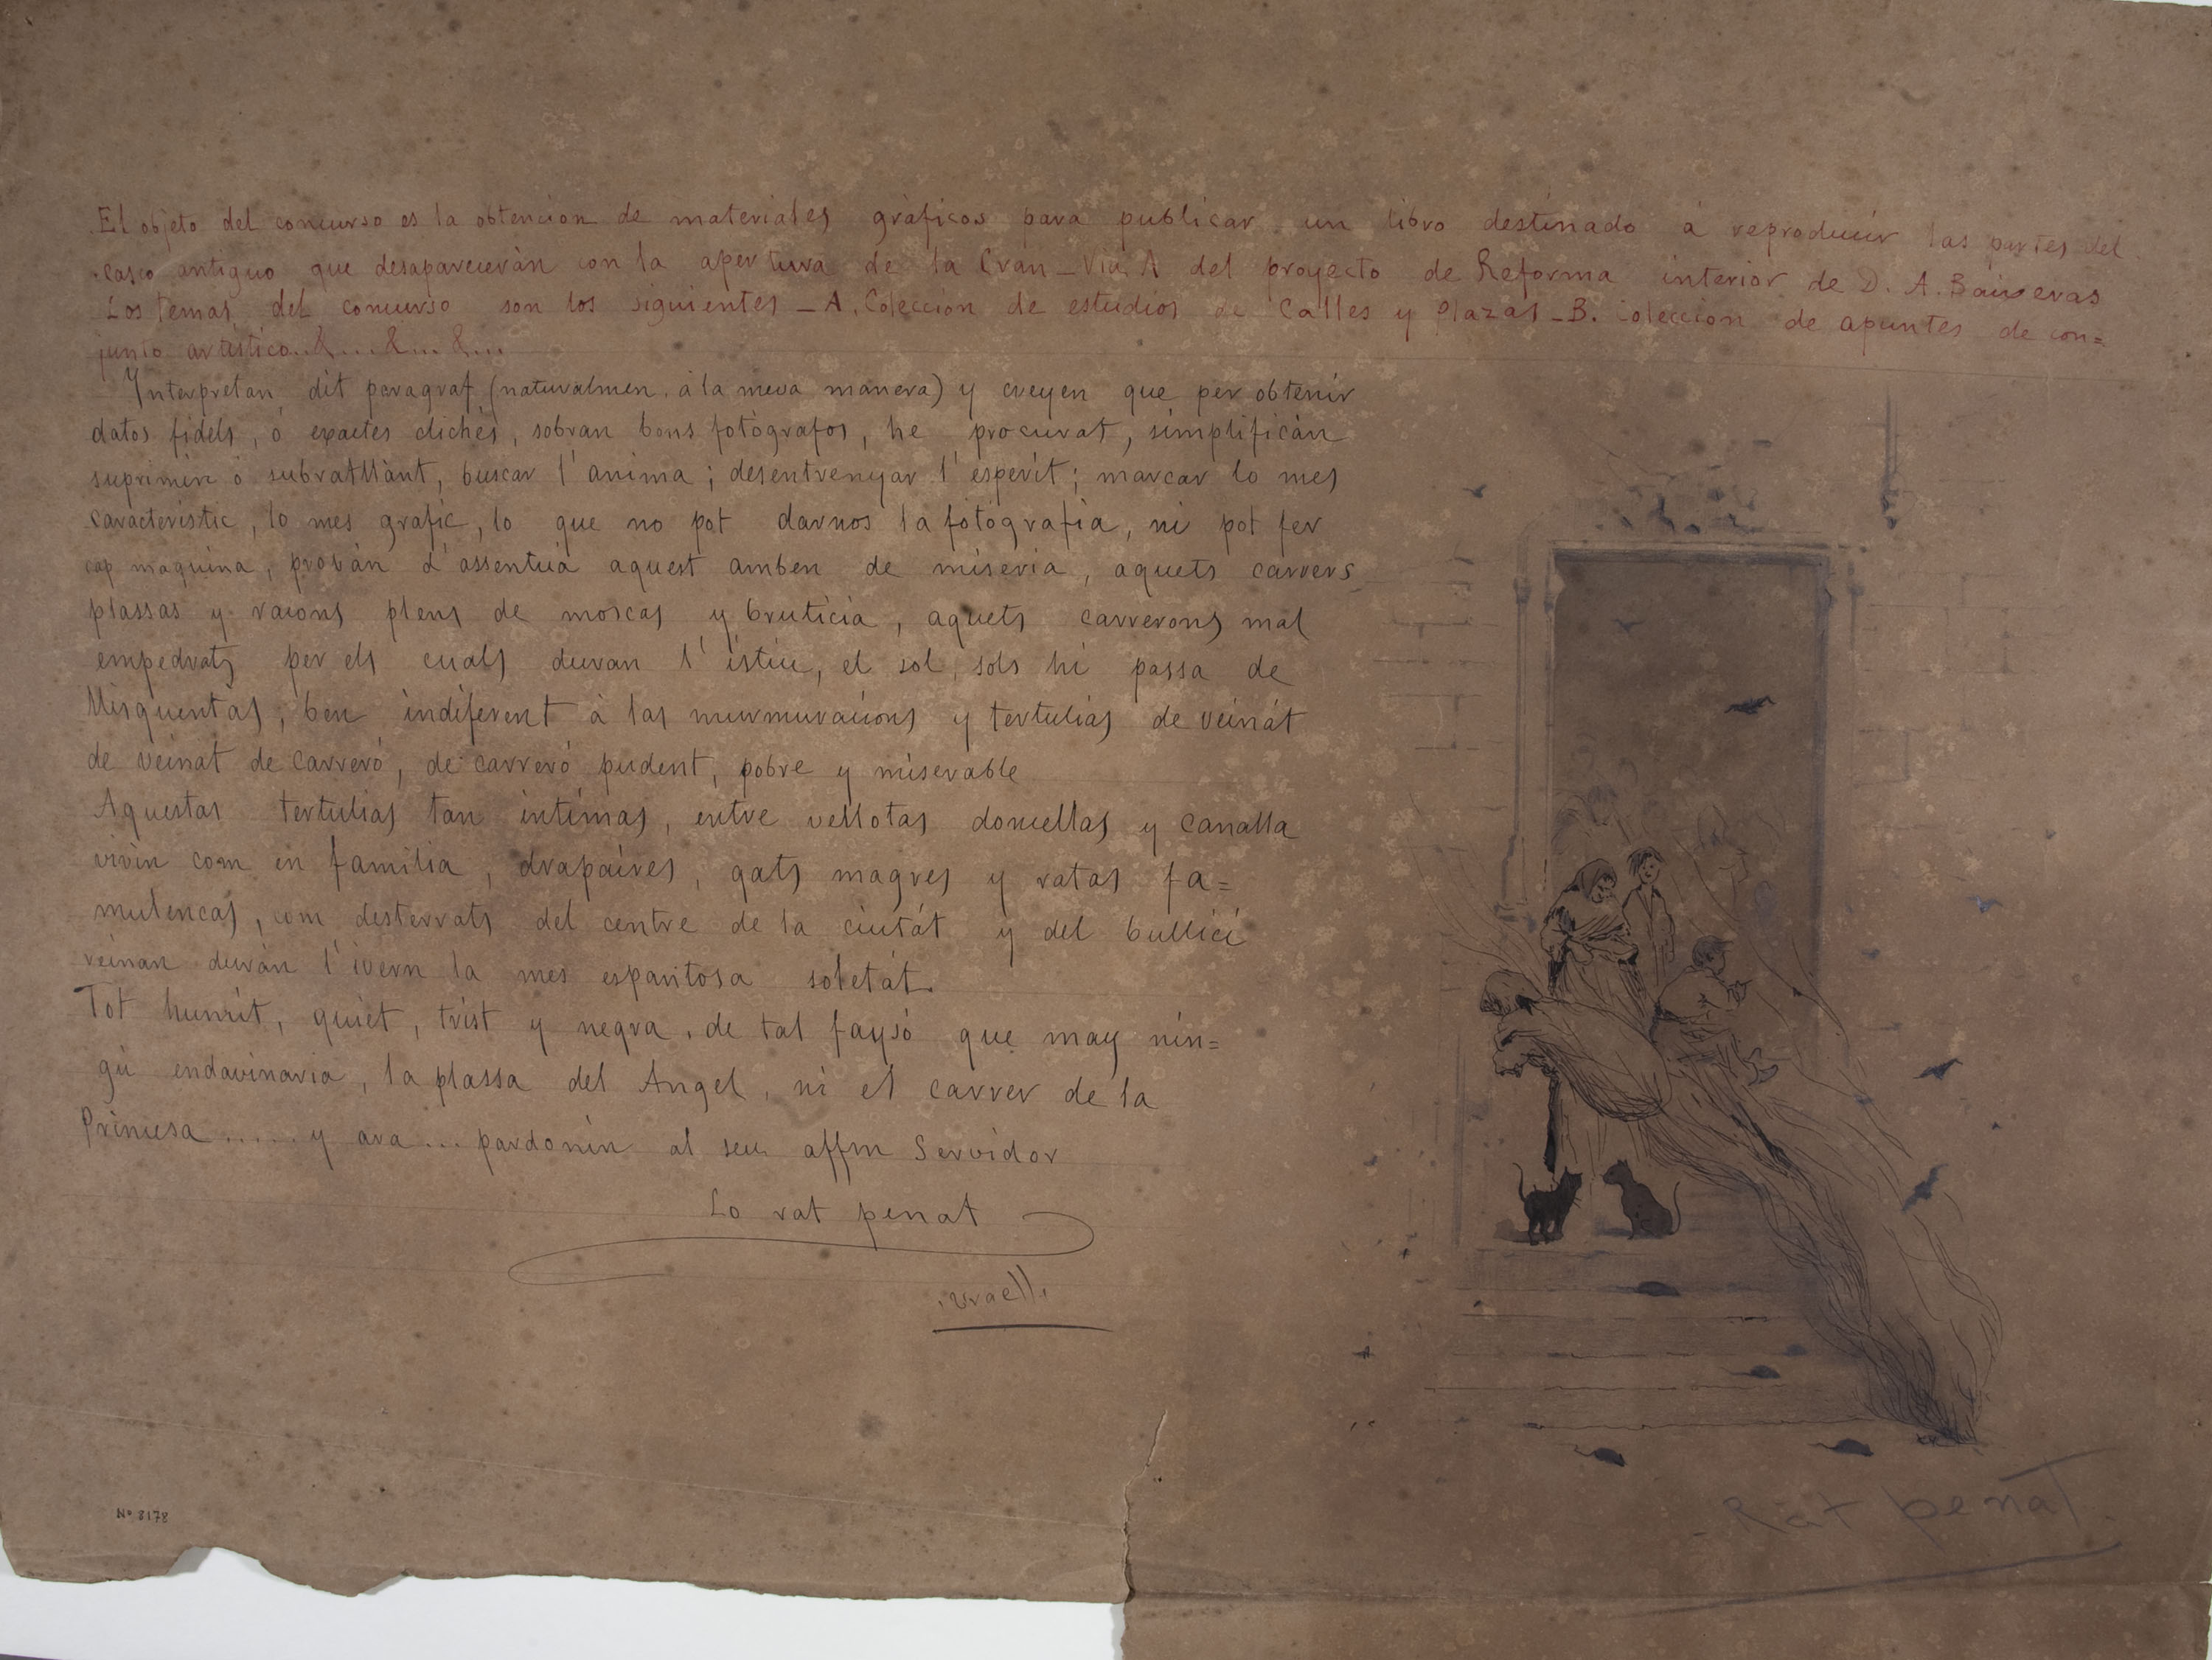 El objeto del concurso es la obtencion de materiales gráficos para publicar un libro destinado á reproducir las partes del
casco antiguo que desaparecerán con la apertura de la Gran-Via A del proyecto de Reforma interior de D. A. Baixeras
Los temas del concurso son los siguientes - A. Colección de estudios de Calles y Plazas - B. Coleccion de apuntes de con=
junto artístico..&...&...&...
Interpretan dit paragraf (naturalmen, á la meva manera) y creyen que per obtenir
datos fidels, ó exactes clichés, sobran bons fotògrafos, he procurat, simplificàn
suprimin ó subratllànt, buscar l'anima; desentrenyar l'esperit; marcar lo mes
caracteristic, lo mes grafic, lo que no pot darnos la fotografia, ni pot fer
cap maquina, probàn d'assentuà aquest amben de miseria, aquets carrers
plassas y racons plens de moscas y bruticia, aquets carrerons mal
empedrats per els cuals duran l'istiu, el sol, sols hi passa de
Misquentas, ben indiferent à las murmuracions y tertulias de veinát
de veinat de carreró, de carreró pudent, pobre y miserable
Aquestas tertulias tan intimas, entre vellotas doncellas y canalla
vivin com en familia, drapaires, gats magres y ratas fa=
mulencas, com desterrats del centre de la ciutát y del bullici
reinan duràn l'ivern la mes espantosa soletát.
Tot humit, quiet, trist y negra, de tal faysó que may nin=
gú endavinaria, la plassa del Angel, ni el carrer de la
Princesa ..... y ara ... pardonin al seu affm Servidor
Lo rat penat
Nº 8178
Rat penat